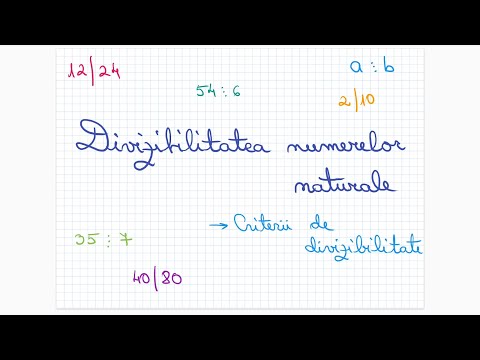 12/24
a ⋮ b
54 ⋮ 6
2/10
Divizibilitatea numerelor
naturale
→ Criterii de
divizibilitate
35 ⋮ 7
40/80